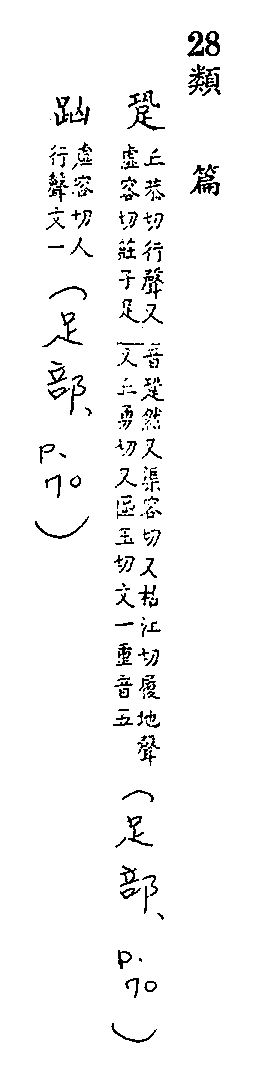 28 類篇
跫 丘恭切行聲又虛容切莊子足音跫然又渠容切又枯江切履地聲又丘勇切又區玉切文一重音五(足部、p.70)
虛容切人行聲文一(足部、p.70)